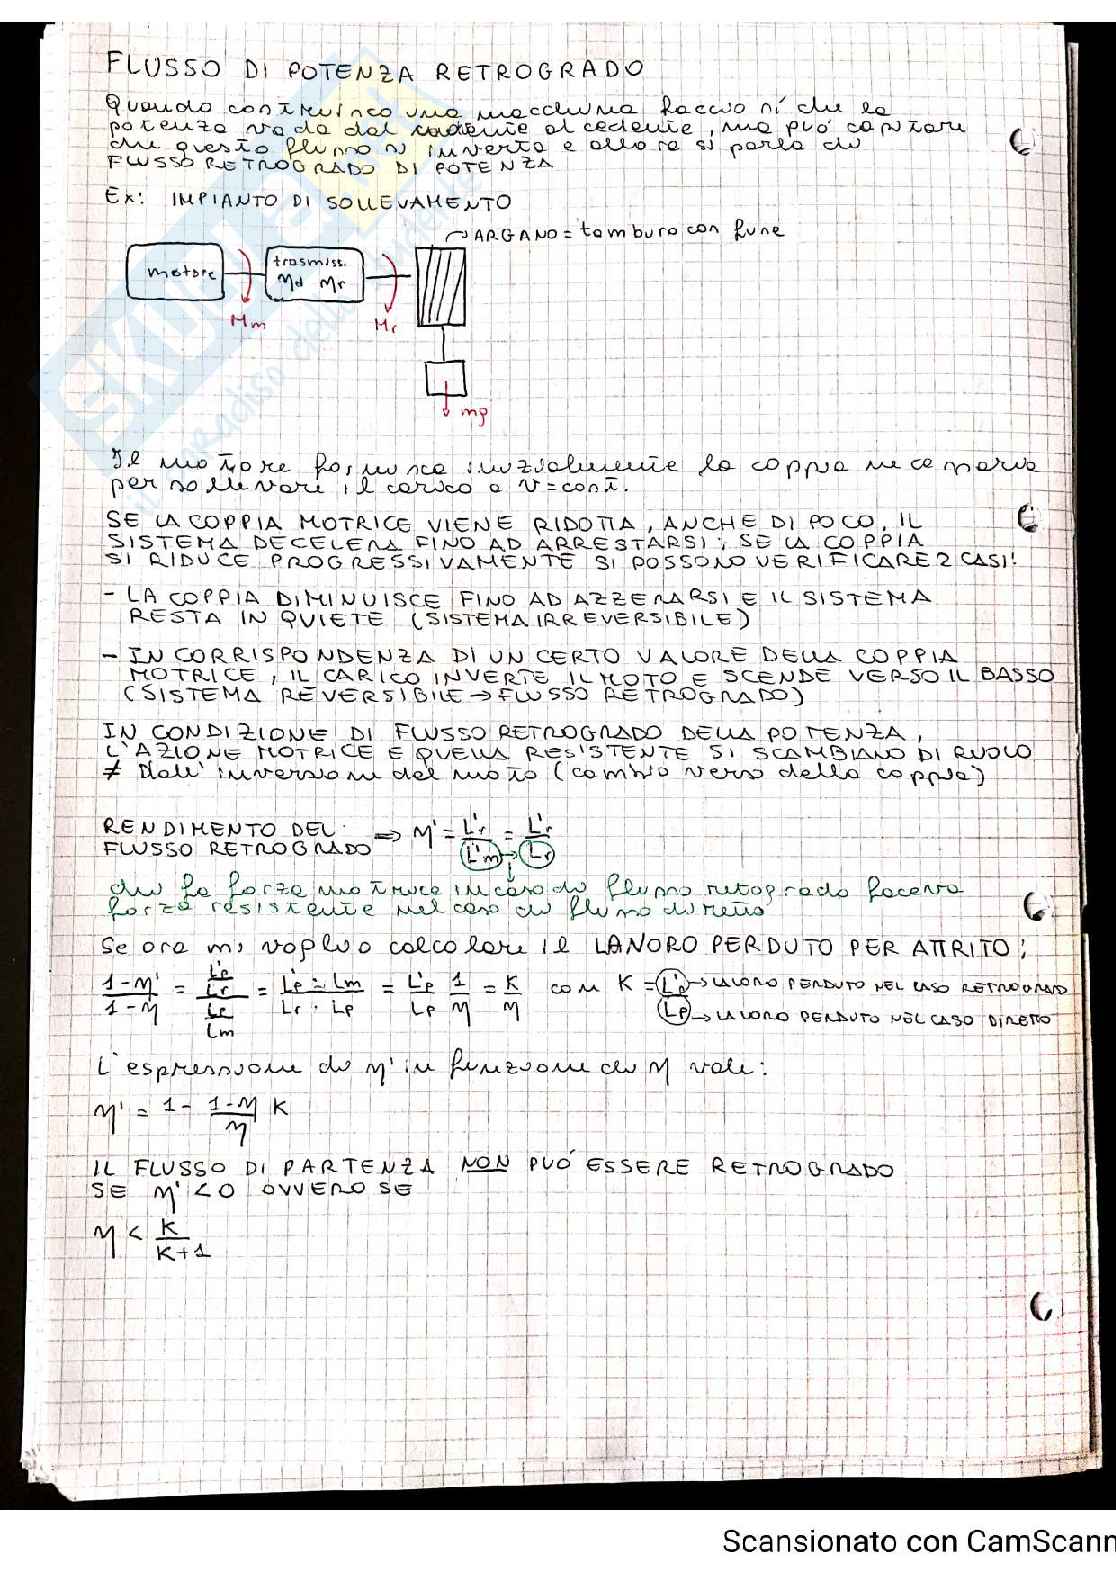 FLUSSO DI POTENZA RETROGRADO
Quando costruisco una macchina faccio sì che la
potenza vada dal cedente al cedente, ma può capitare
che questo flusso si inverta e allora si parla di
FLUSSO RETROGRADO DI POTENZA
Ex: IMPIANTO DI SOLLEVAMENTO
ARGANO = tamburo con fune
motore
trasmiss.
ηd ηr
Mm
Mr
mg
Il motore fornisce inizialmente la coppia necessaria
per sollevare il carico a v=cost.
SE LA COPPIA MOTRICE VIENE RIDOTTA, ANCHE DI POCO, IL
SISTEMA DECELERA FINO AD ARRESTARSI; SE LA COPPIA
SI RIDUCE PROGRESSIVAMENTE SI POSSONO VERIFICARE 2 CASI:
- LA COPPIA DIMINUISCE FINO AD AZZERARSI E IL SISTEMA
RESTA IN QUIETE (SISTEMA IRREVERSIBILE)
- IN CORRISPONDENZA DI UN CERTO VALORE DELLA COPPIA
MOTRICE, IL CARICO INVERTE IL MOTO E SCENDE VERSO IL BASSO
(SISTEMA REVERSIBILE → FLUSSO RETROGRADO)
IN CONDIZIONE DI FLUSSO RETROGRADO DELLA POTENZA,
L'AZIONE MOTRICE E QUELLA RESISTENTE SI SCAMBIANO DI RUOLO
≠ Dall'inversione del moto (cambio verso della coppia)
RENDIMENTO DEL
FLUSSO RETROGRADO ⇒ η' = L'r/L'm = L'r/Lr
chi fa forza motrice in caso di flusso retrogrado faceva
forza resistente nel caso di flusso diretto
Se ora mi voglio calcolare il LAVORO PERDUTO PER ATTRITO:
(1-η')/(1-η) = (L'p/Lr)/(Lp/Lm) = (L'p · Lm)/(Lr · Lp) = L'p/Lp 1/η = K/η con K = L'p → LAVORO PERDUTO NEL CASO RETROGRADO
Lp → LAVORO PERDUTO NEL CASO DIRETTO
L'espressione di η' in funzione di η vale:
η' = 1 - (1-η)/η K
IL FLUSSO DI PARTENZA NON PUÓ ESSERE RETROGRADO
SE η' < 0 OVVERO SE
η < K/(K+1)
Scansionato con CamScann